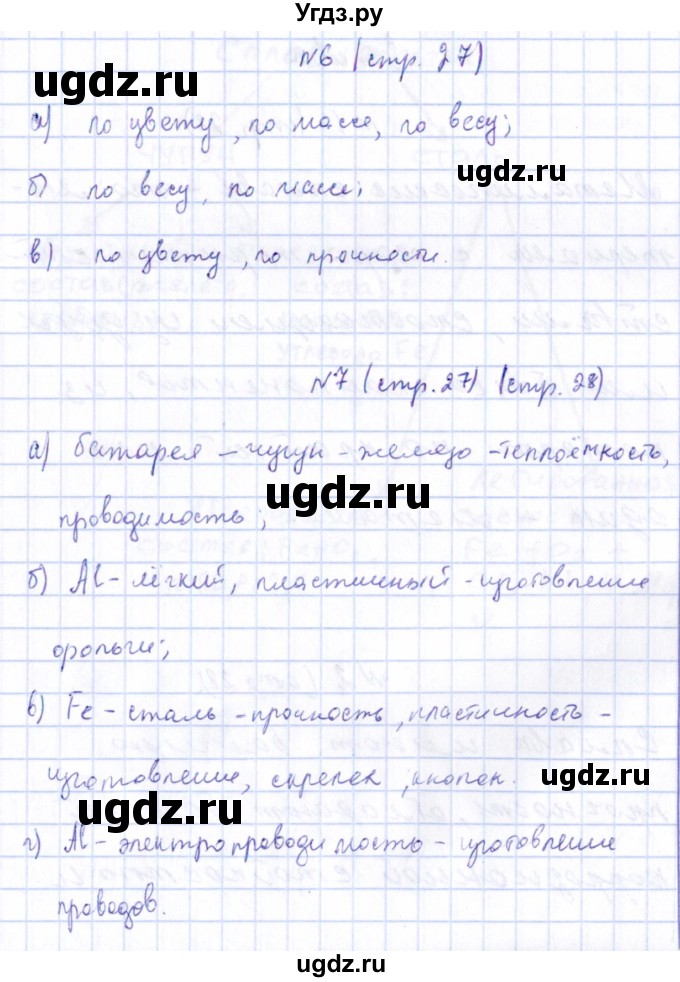 Угдз.ру
№6 (стр. 27)
ugdz.ru
а) по цвету, по массе, по весу;
ugdz.ru
б) по весу, по массе;
в) по цвету, по прочности.
№7 (стр. 27) (стр. 28)
а) батарея – чугун – железо – теплоёмкость,
ugdz.ru
проводимость;
б) Al – лёгкий, пластичный – изготовление
ugdz.ru
фольги;
в) Fe – сталь – прочность, пластичность –
изготовление, скрепек, кнопок.
ugdz.ru
г) Al – электропроводимость – изготовление
проводов.
ugdz.ru